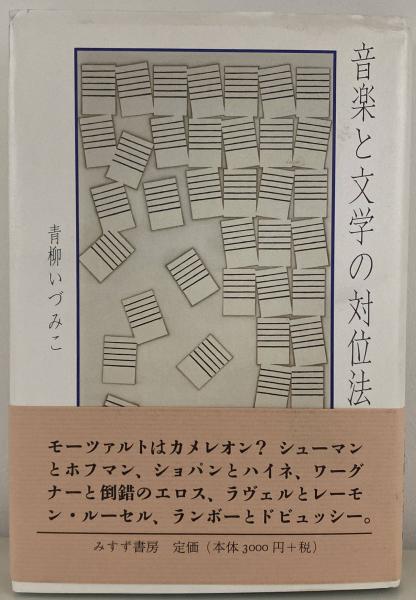 音楽と文学の対位法
青柳いづみこ
モーツァルトはカメレオン？ シューマン
とホフマン、ショパンとハイネ、ワーグ
ナーと倒錯のエロス、ラヴェルとレーモ
ン・ルーセル、ランボーとドビュッシー。
みすず書房 定価（本体3000円＋税）